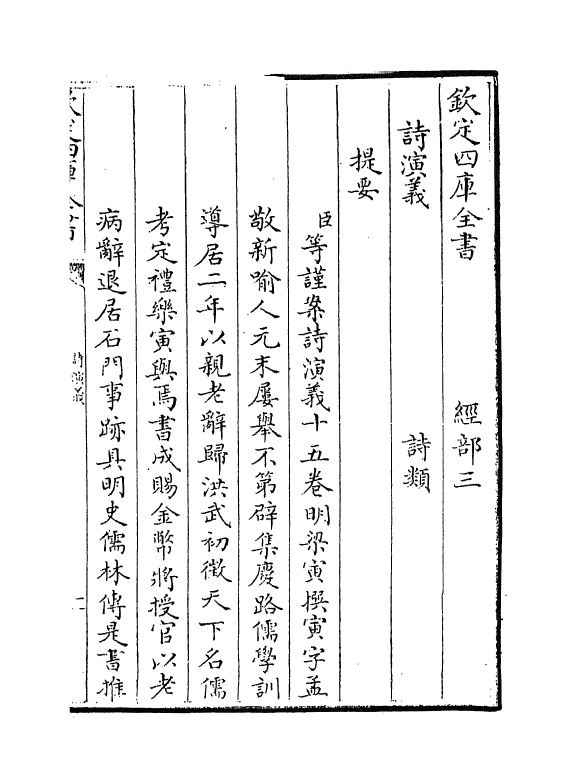 欽定四庫全書　經部三
詩演義　詩類
提要
臣等謹案詩演義十五卷明梁寅撰寅字孟
敬新喻人元末屢舉不第辟集慶路儒學訓
導居二年以親老辭歸洪武初徵天下名儒
考定禮樂寅與焉書成賜金幣將授官以老
病辭退居石門事跡具明史儒林傳是書推
欽定四庫全書
詩演義
一